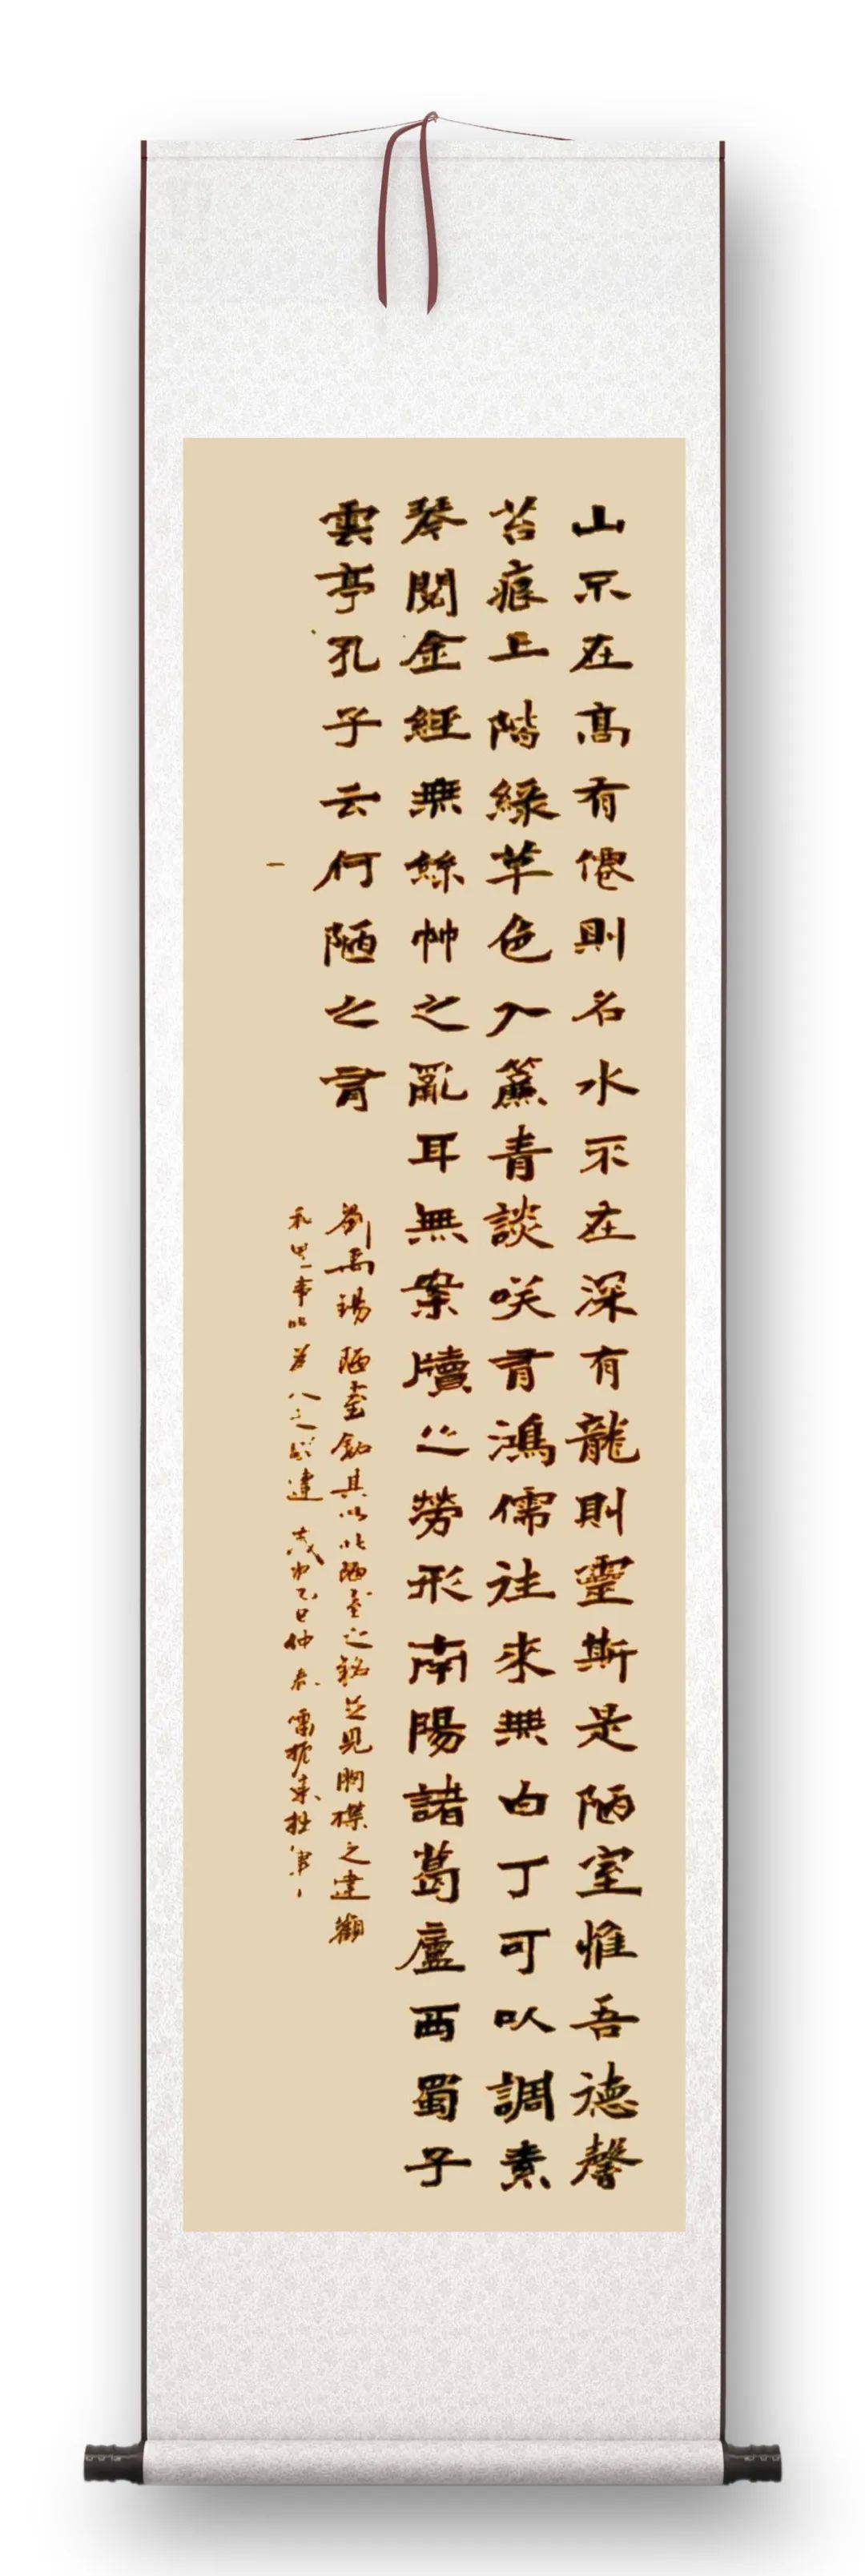 山不在高有僊則名水不在深有龍則靈斯是陋室惟吾德馨
苔痕上階綠草色入簾青談咲有鴻儒往來無白丁可以調素
琴閱金經無絲竹之亂耳無案牘之勞形南陽諸葛廬西蜀子
雲亭孔子云何陋之有
劉禹錫陋室銘其以此陋室之銘足見胸襟之達觀
乙巳仲春